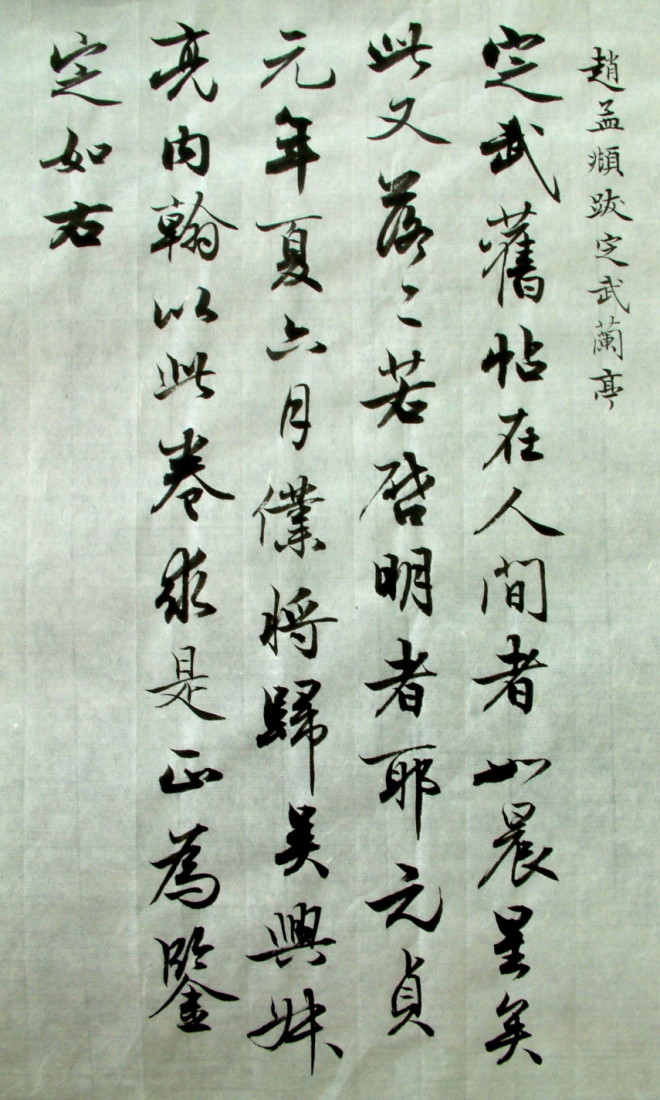 趙孟頫跋定武蘭亭
定武舊帖在人間者如晨星矣
此又落〻若啓明者耶元貞
元年夏六月僕將歸吳興叔
亮内翰以此卷求是正為鑒
定如右